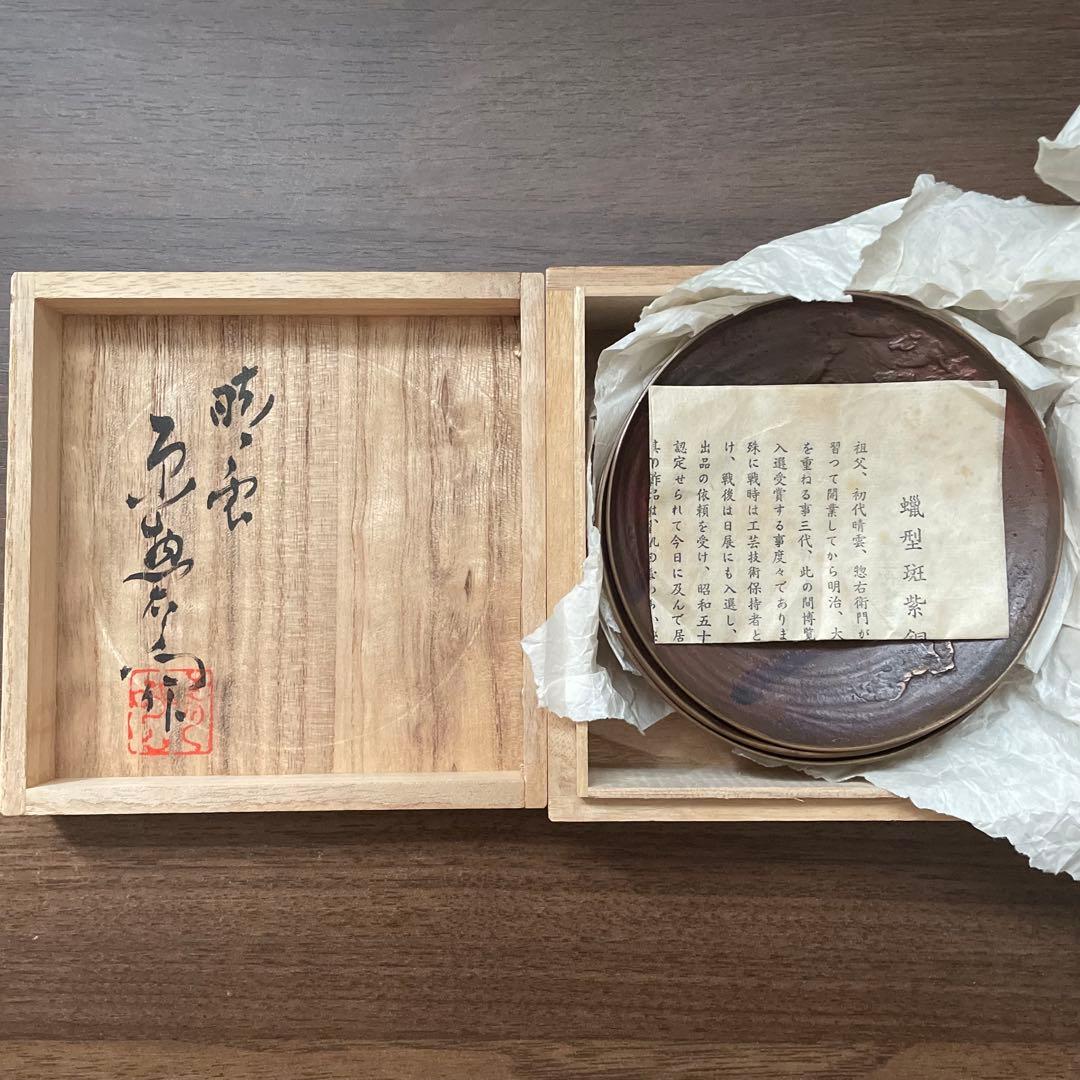 晴雲
原惣右エ門作
蠟型斑紫銅
祖父、初代晴雲、惣右衛門が
習つて開業してから明治、大
を重ねる事三代、此の間博覧
入選受賞する事度々でありま
殊に戦時は工芸技術保持者と
け、戦後は日展にも入選し、
出品の依頼を受け、昭和五十
認定せられて今日に及んで居